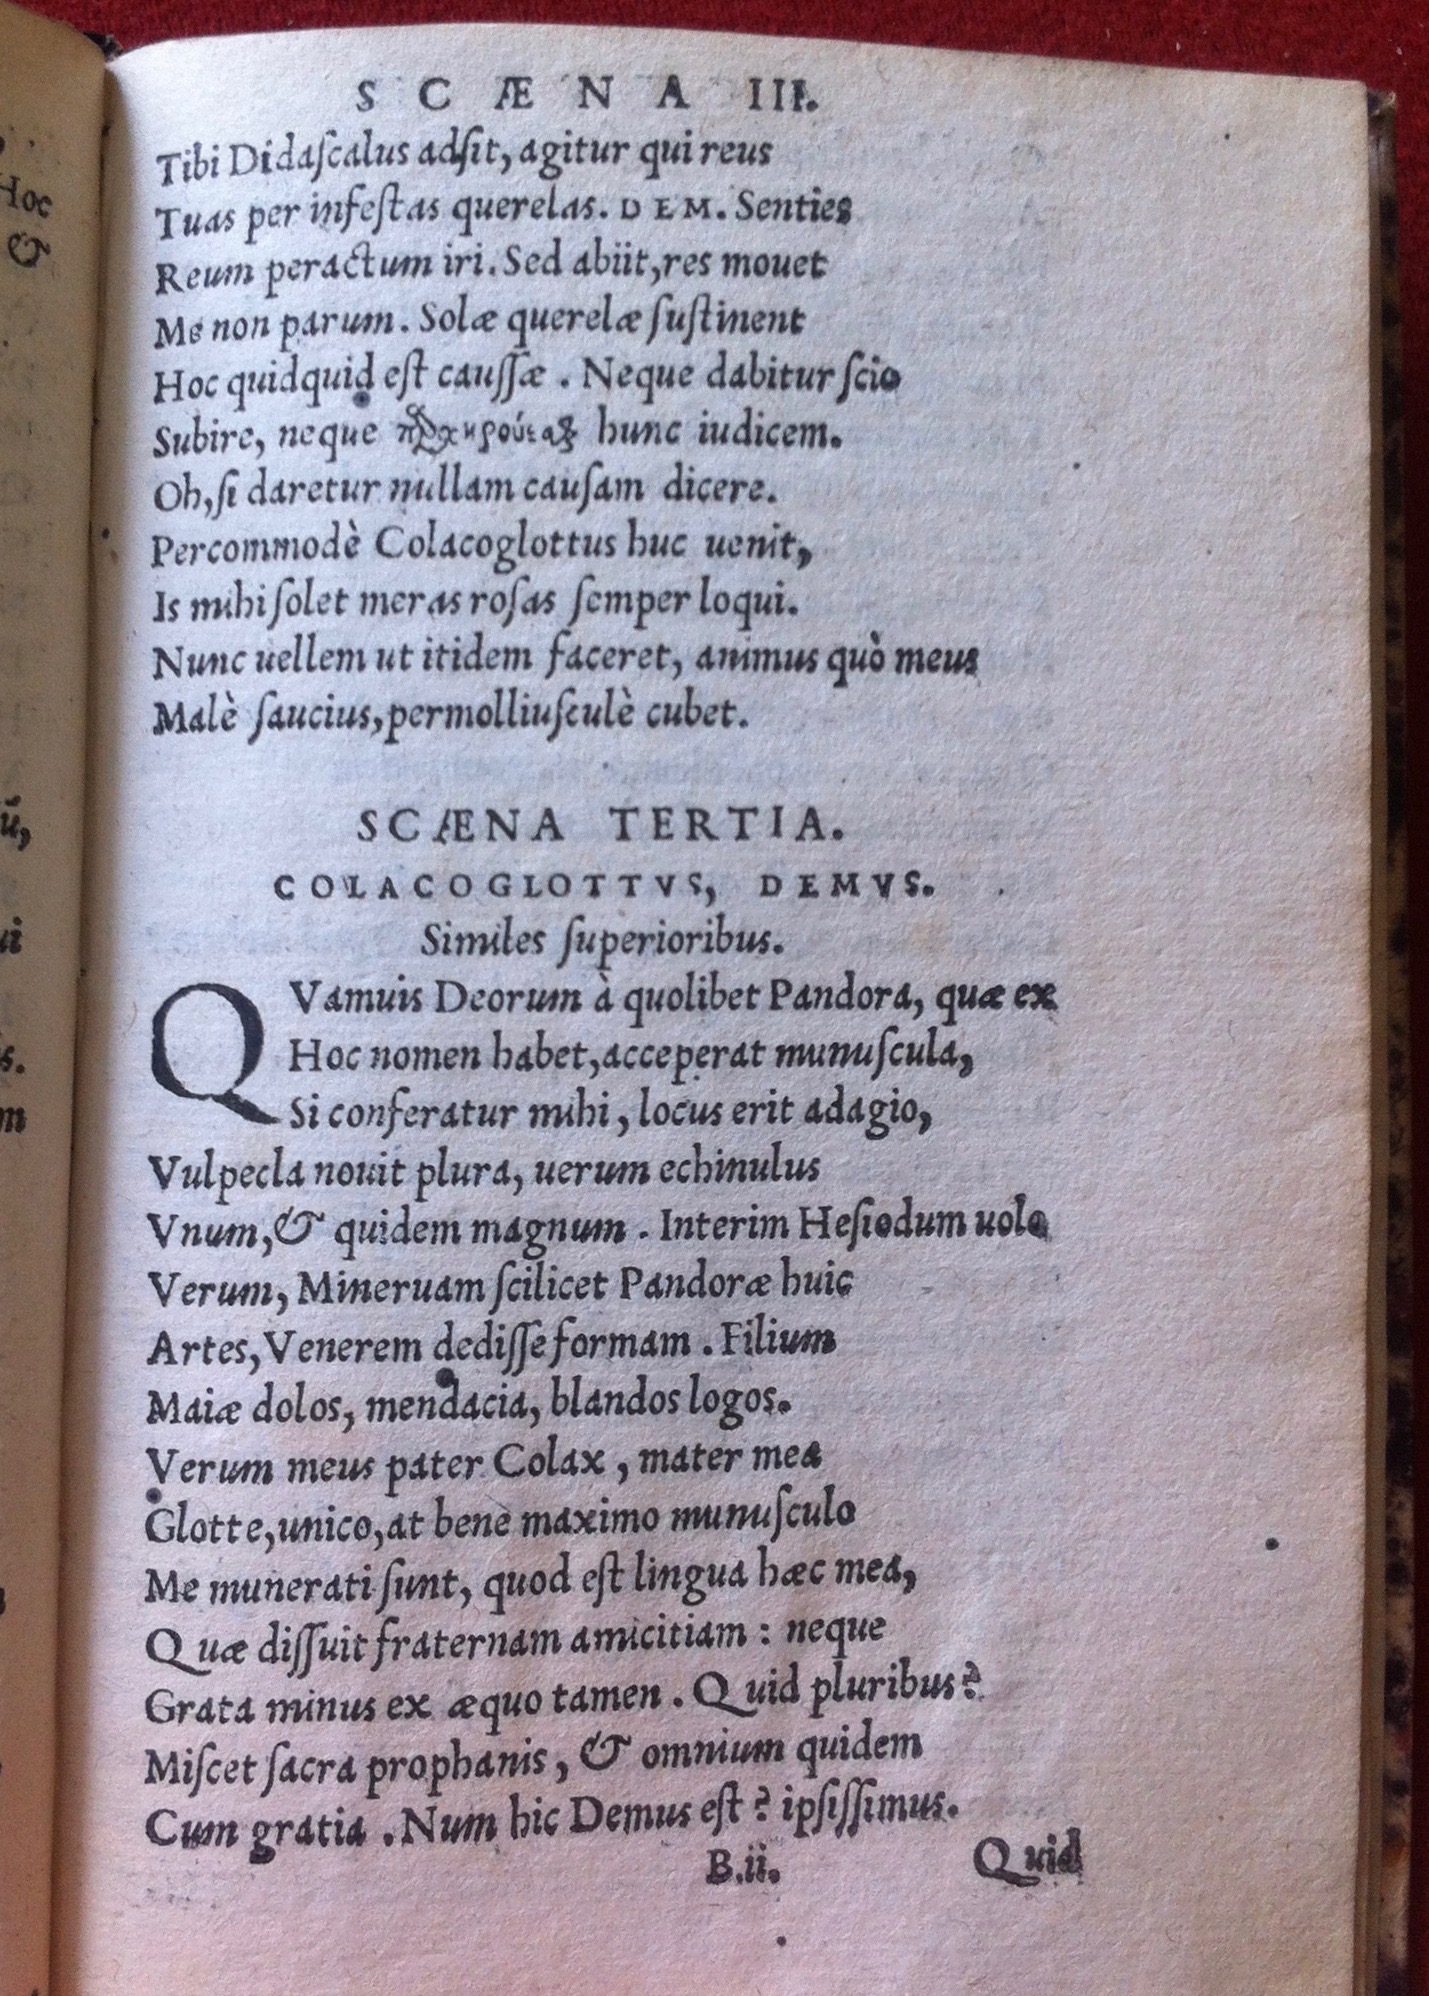 SCÆNA III.
Tibi Didaſcalus adſit, agitur qui reus
Tuas per infeſtas querelas. DEM. Senties
Reum peractum iri. Sed abiit, res mouet
Me non parum. Solæ querelæ ſuſtinent
Hoc quidquid eſt cauſſæ. Neque dabitur ſcio
Subire, neque hunc iudicem.
Oh, ſi daretur nullam cauſam dicere.
Percommodè Colacoglottus huc uenit,
Is mihi ſolet meras roſas ſemper loqui.
Nunc uellem ut itidem faceret, animus quò meus
Malè ſaucius, permolliuſculè cubet.
SCÆNA TERTIA.
COLACOGLOTTVS, DEMVS.
Similes ſuperioribus.
QVamuis Deorum à quolibet Pandora, quæ ex
Hoc nomen habet, acceperat munuſcula,
Si conferatur mihi, locus erit adagio,
Vulpecla nouit plura, uerum echinulus
Vnum, & quidem magnum. Interim Heſiodum uolo
Verum, Mineruam ſcilicet Pandoræ huic
Artes, Venerem dediſſe formam. Filium
Maiæ dolos, mendacia, blandos logos.
Verum meus pater Colax, mater mea
Glotte, unico, at bene maximo munuſculo
Me munerati ſunt, quod eſt lingua hæc mea,
Quæ diſſuit fraternam amicitiam: neque
Grata minus ex æquo tamen. Quid pluribus?
Miſcet ſacra prophanis, & omnium quidem
Cum gratia. Num hic Demus eſt? ipſiſſimus.
B.ii. Quid